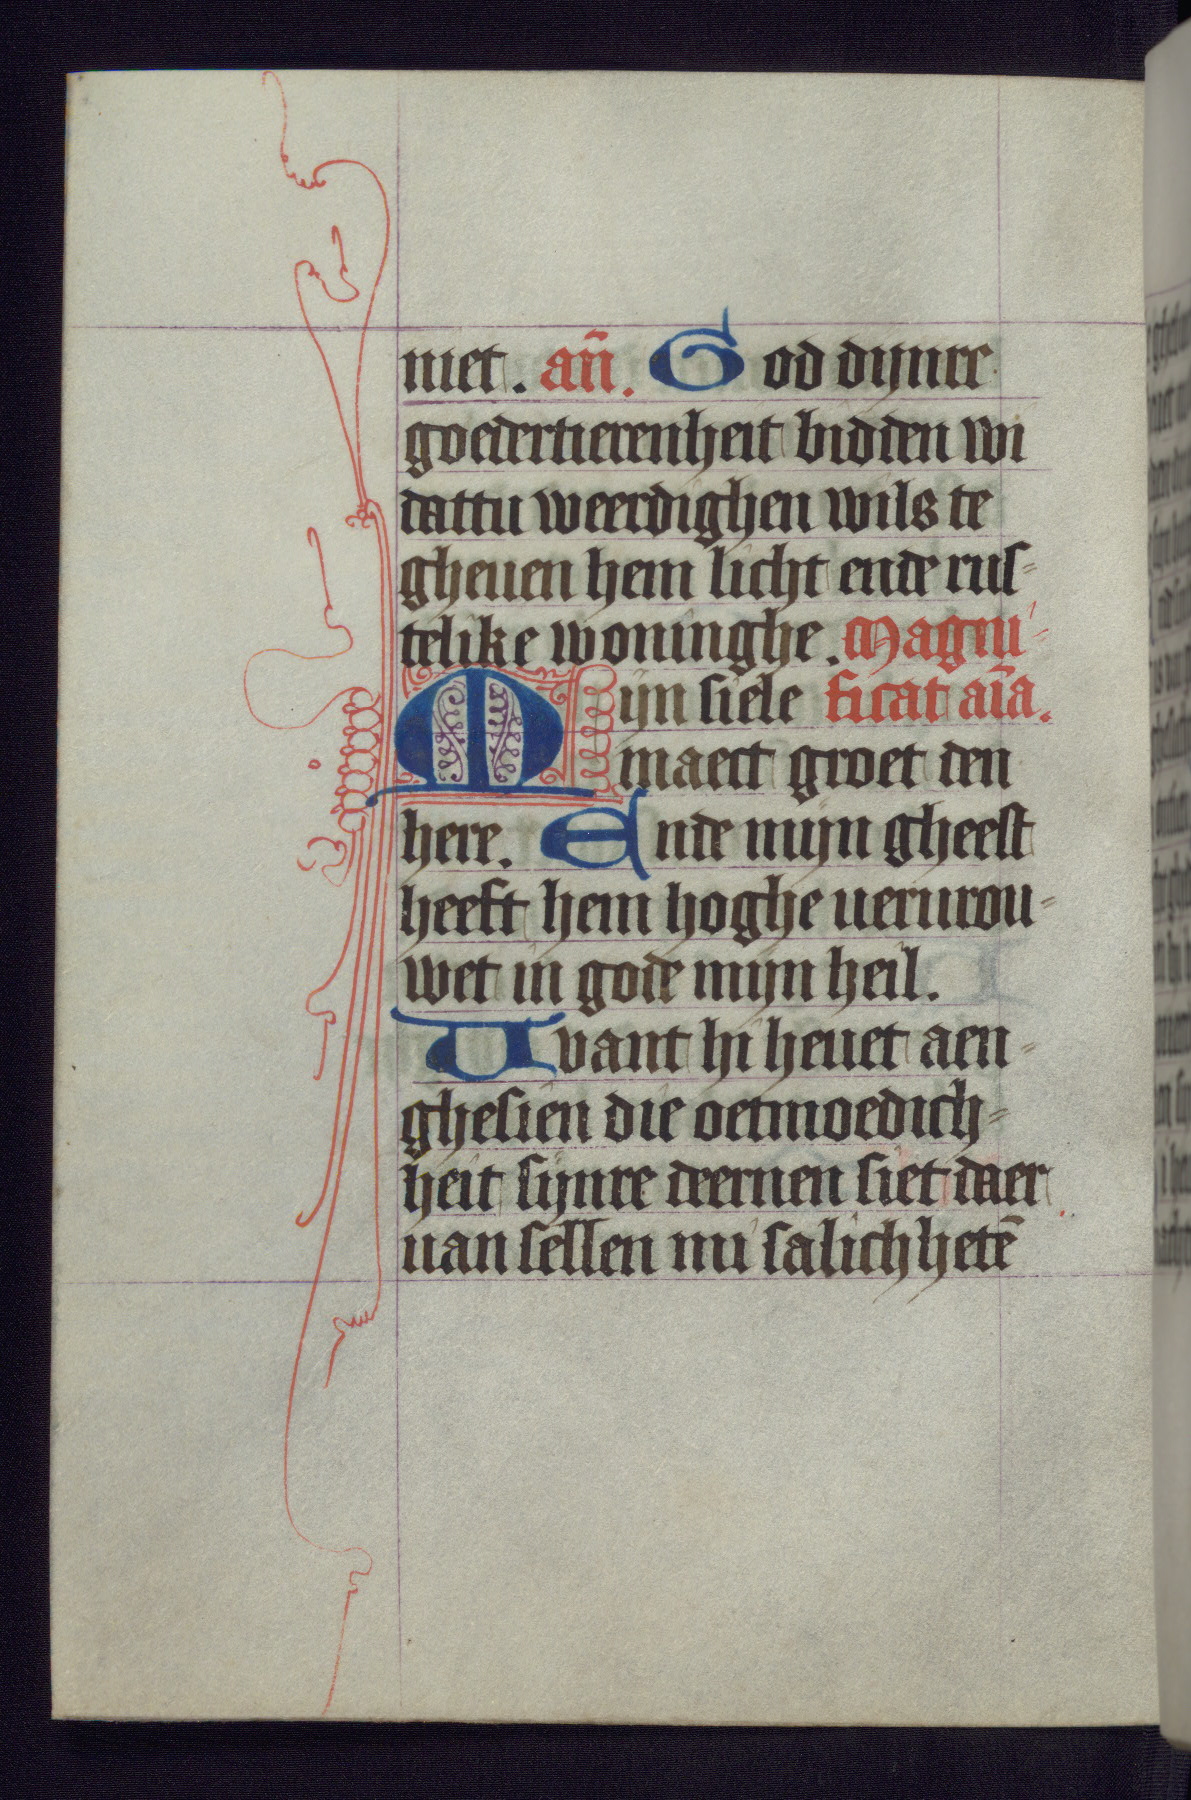 niet. an̄. God dijnre
goedertierenheit bidden wi
dattu weerdighen wils te
gheuen hem licht ende rus-
telike woninghe. Magni-
Mijn siele ficat aīa.
maect groet den
here. Ende mijn gheest
heeft hem hoghe uerurou-
wet in gode mijn heil.
Uvant hi heuet aen-
ghesien die oetmoedich-
heit sijnre deernen siet daer
uan sellen mi salich hetē